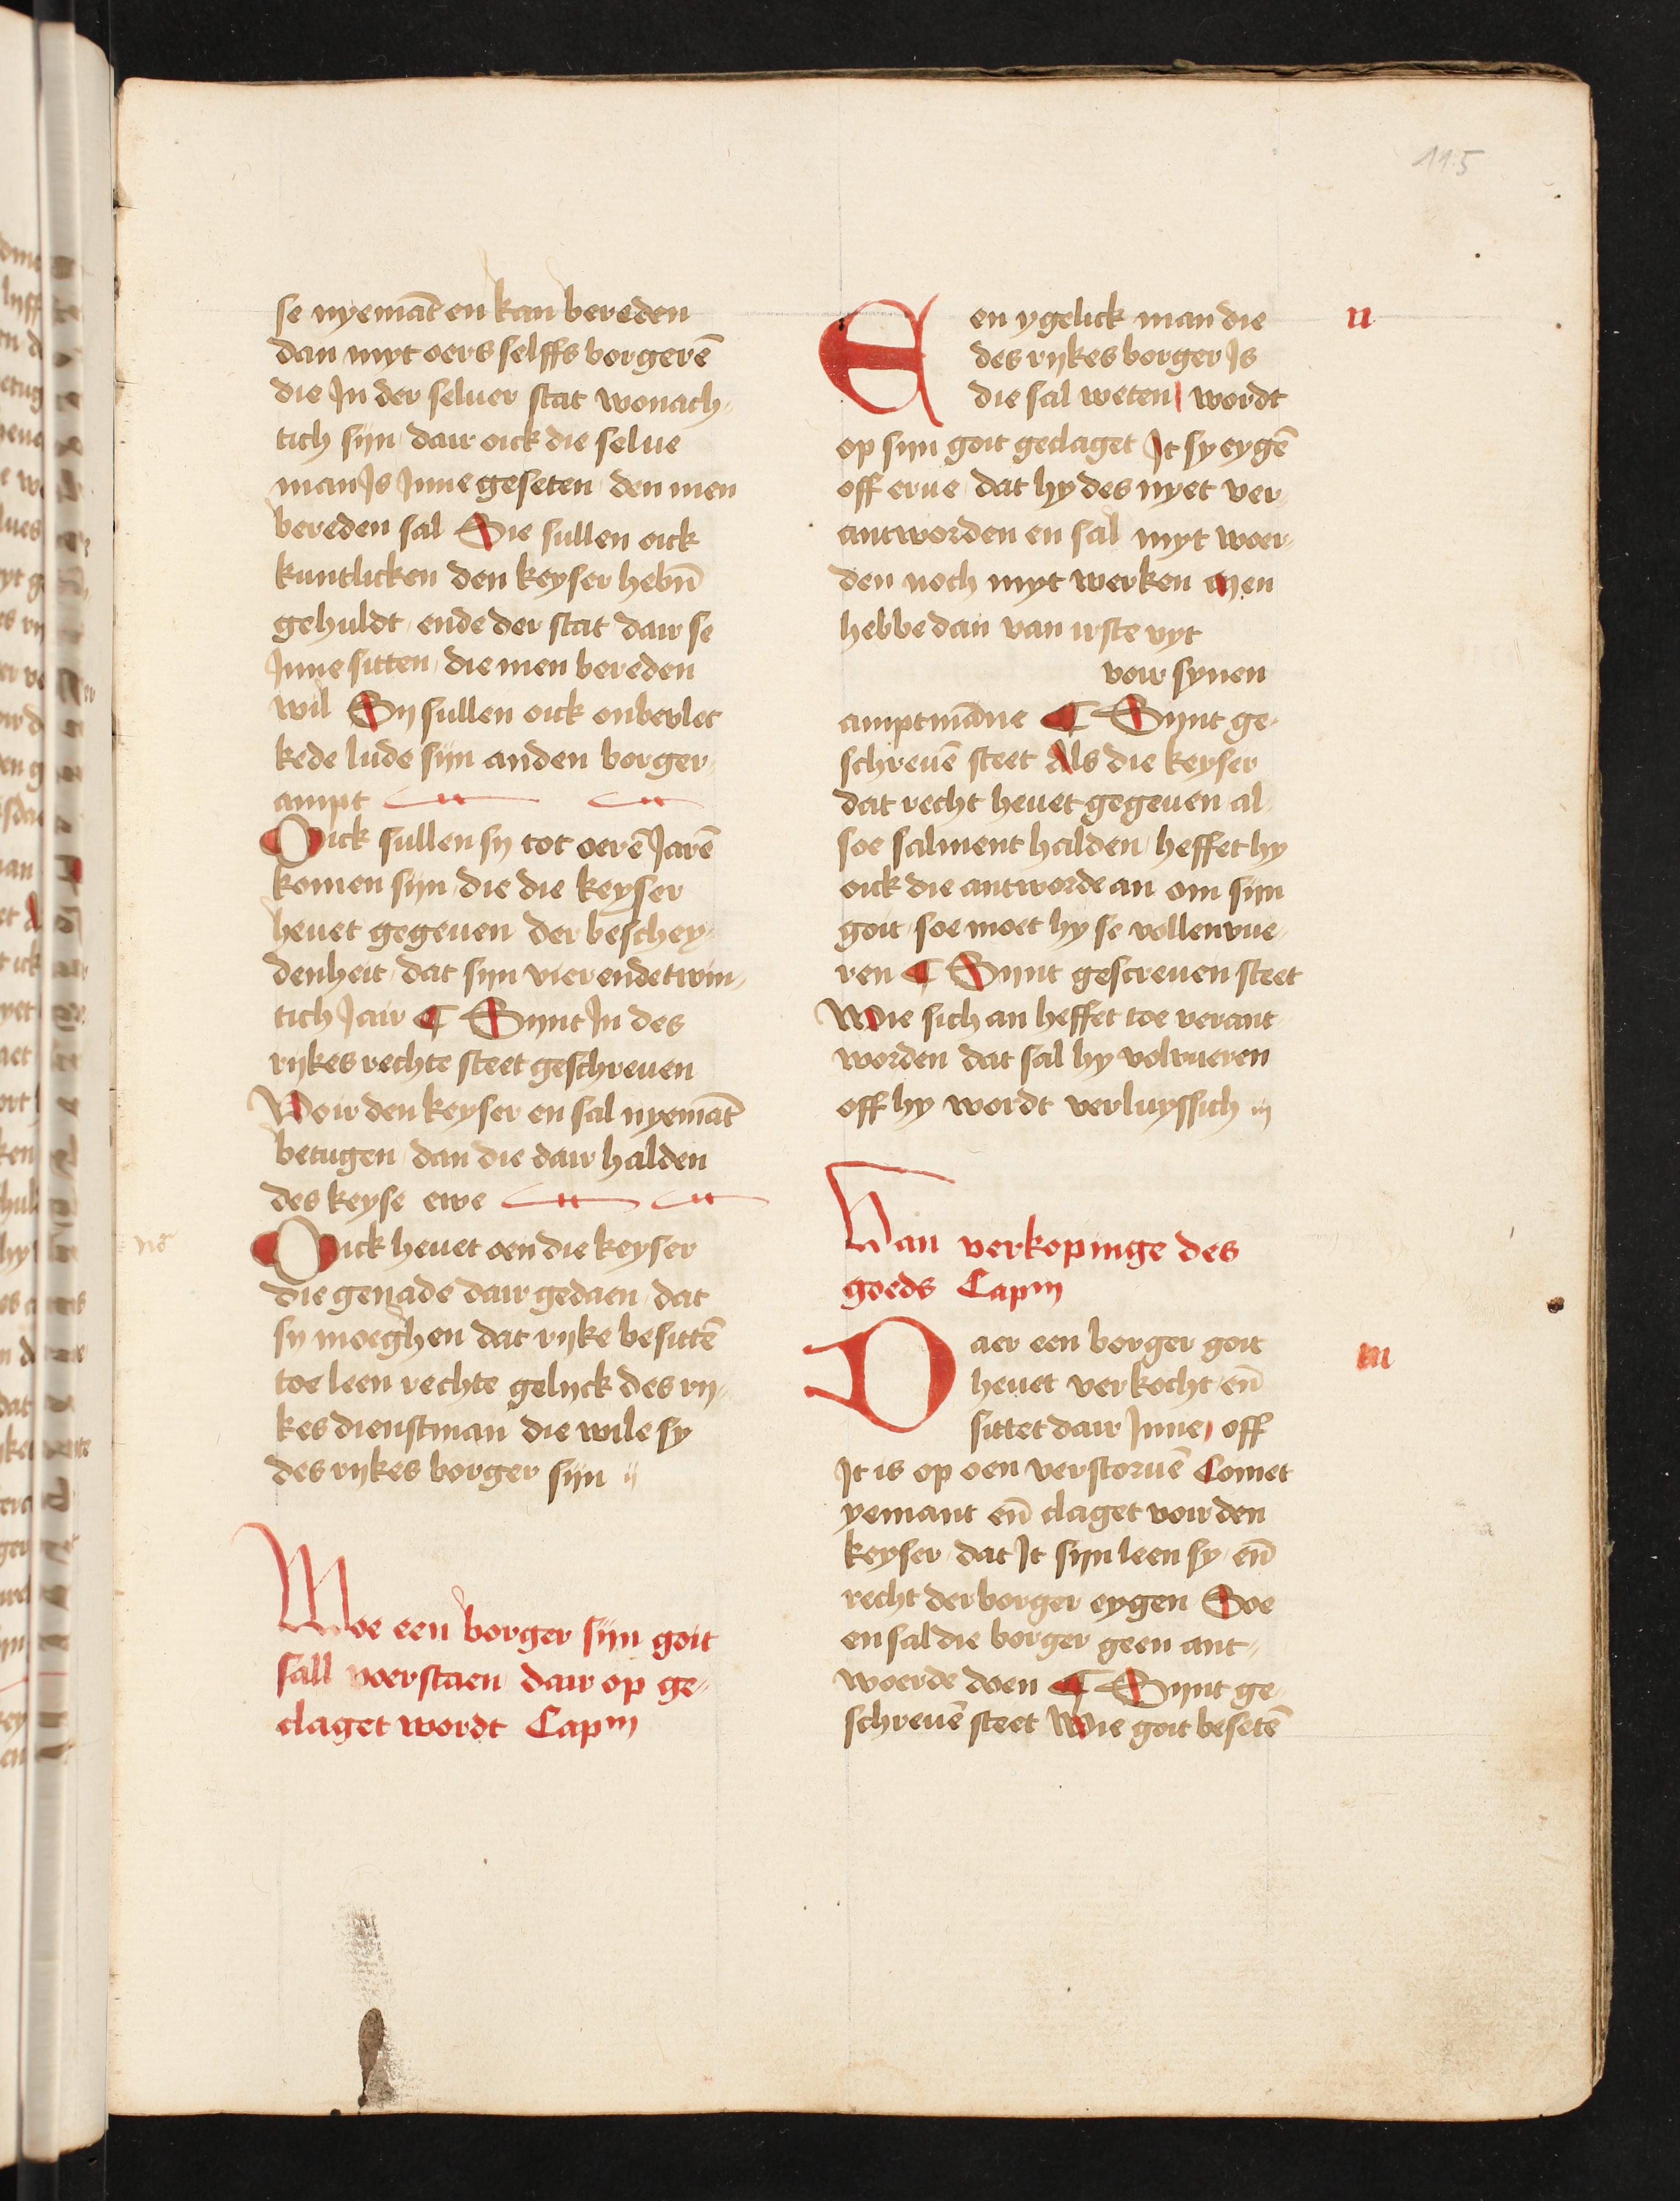 115
se nyemāt en kan bereden
dan myt oers selffs borgerē
die In der seluer stat wonach-
tich sijn dair oick die selue
man Is Inne geseten den men
bereden sal Sie sullen oick
kuntlicken den keyser hebn̄
gehuldt ende der stat dair se
Inne sitten die men bereden
wil Sij sullen oick onbevlec
kede lude sijn an den borger
ampt
Oick sullen sij tot oerē Jarē
komen sijn die die keyser
heuet gegeuen der beschey-
denheit dat sijn vier ende twin-
tich Jair ¶ Sijnt In des
rijkes rechte steet geschreuen
Voir den keyser en sal nyemāt
betugen dan die dair halden
des keyse ewe
Oick heuet oen die keyser
die genade dair gedaen dat
sij moeghen dat rijke besittē
toe leen rechte gelijck des rij-
kes dienstman die wile sy
des rijkes borger sijn
Woe een borger sijn goit
sall voerstaen dair op ge-
claget wordt Capm
Een ygelick man die
des rijkes borger Is
die sal weten wordt
op sijn goit geclaget It sy eygē
off erue dat hy des nyet ver-
antworden en sal myt woer-
den noch myt werken Men
hebbe dan van irste vyt
voir synen
amptmāne ¶ Sijnt ge-
schreuē steet Als die keyser
dat recht heuet gegeuen al
soe salment halden heffet hy
oick die antworde an om sijn
goit soe moet hy se vollenvue-
ren ¶ Sijnt gescreuen steet
Wie sich an heffet toe verant
worden dat sal hy volvueren
off hy wordt verluyssich
Van verkopinge des
goeds Capm
Daer een borger goit
heuet verkocht en̄
sittet dair Inne off
It is op oen verstoruē Comet
yemant en̄ claget voir den
keyser dat It sijn leen sy en̄
recht der borger eygen Soe
en sal die borger geen ant-
woerde doen ¶ Sijnt ge
schreuē steet Wie goit besetē
ii
iii